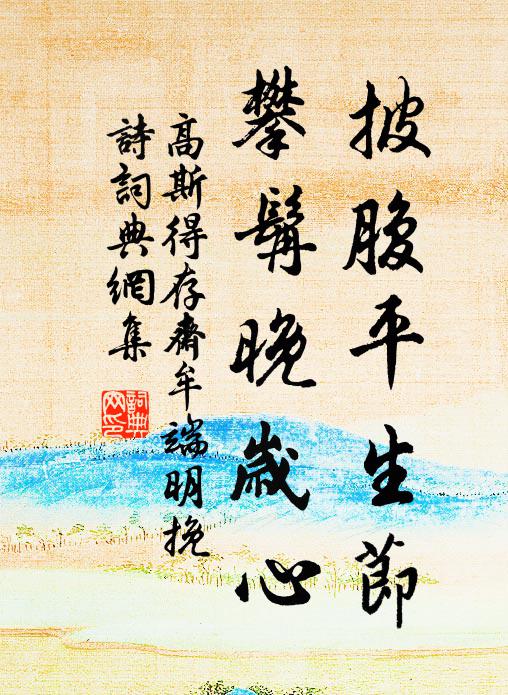 披腹平生節
攀髯晚歲心
高斯得存齋牟端明挽
詩詞典網集
詞典網印